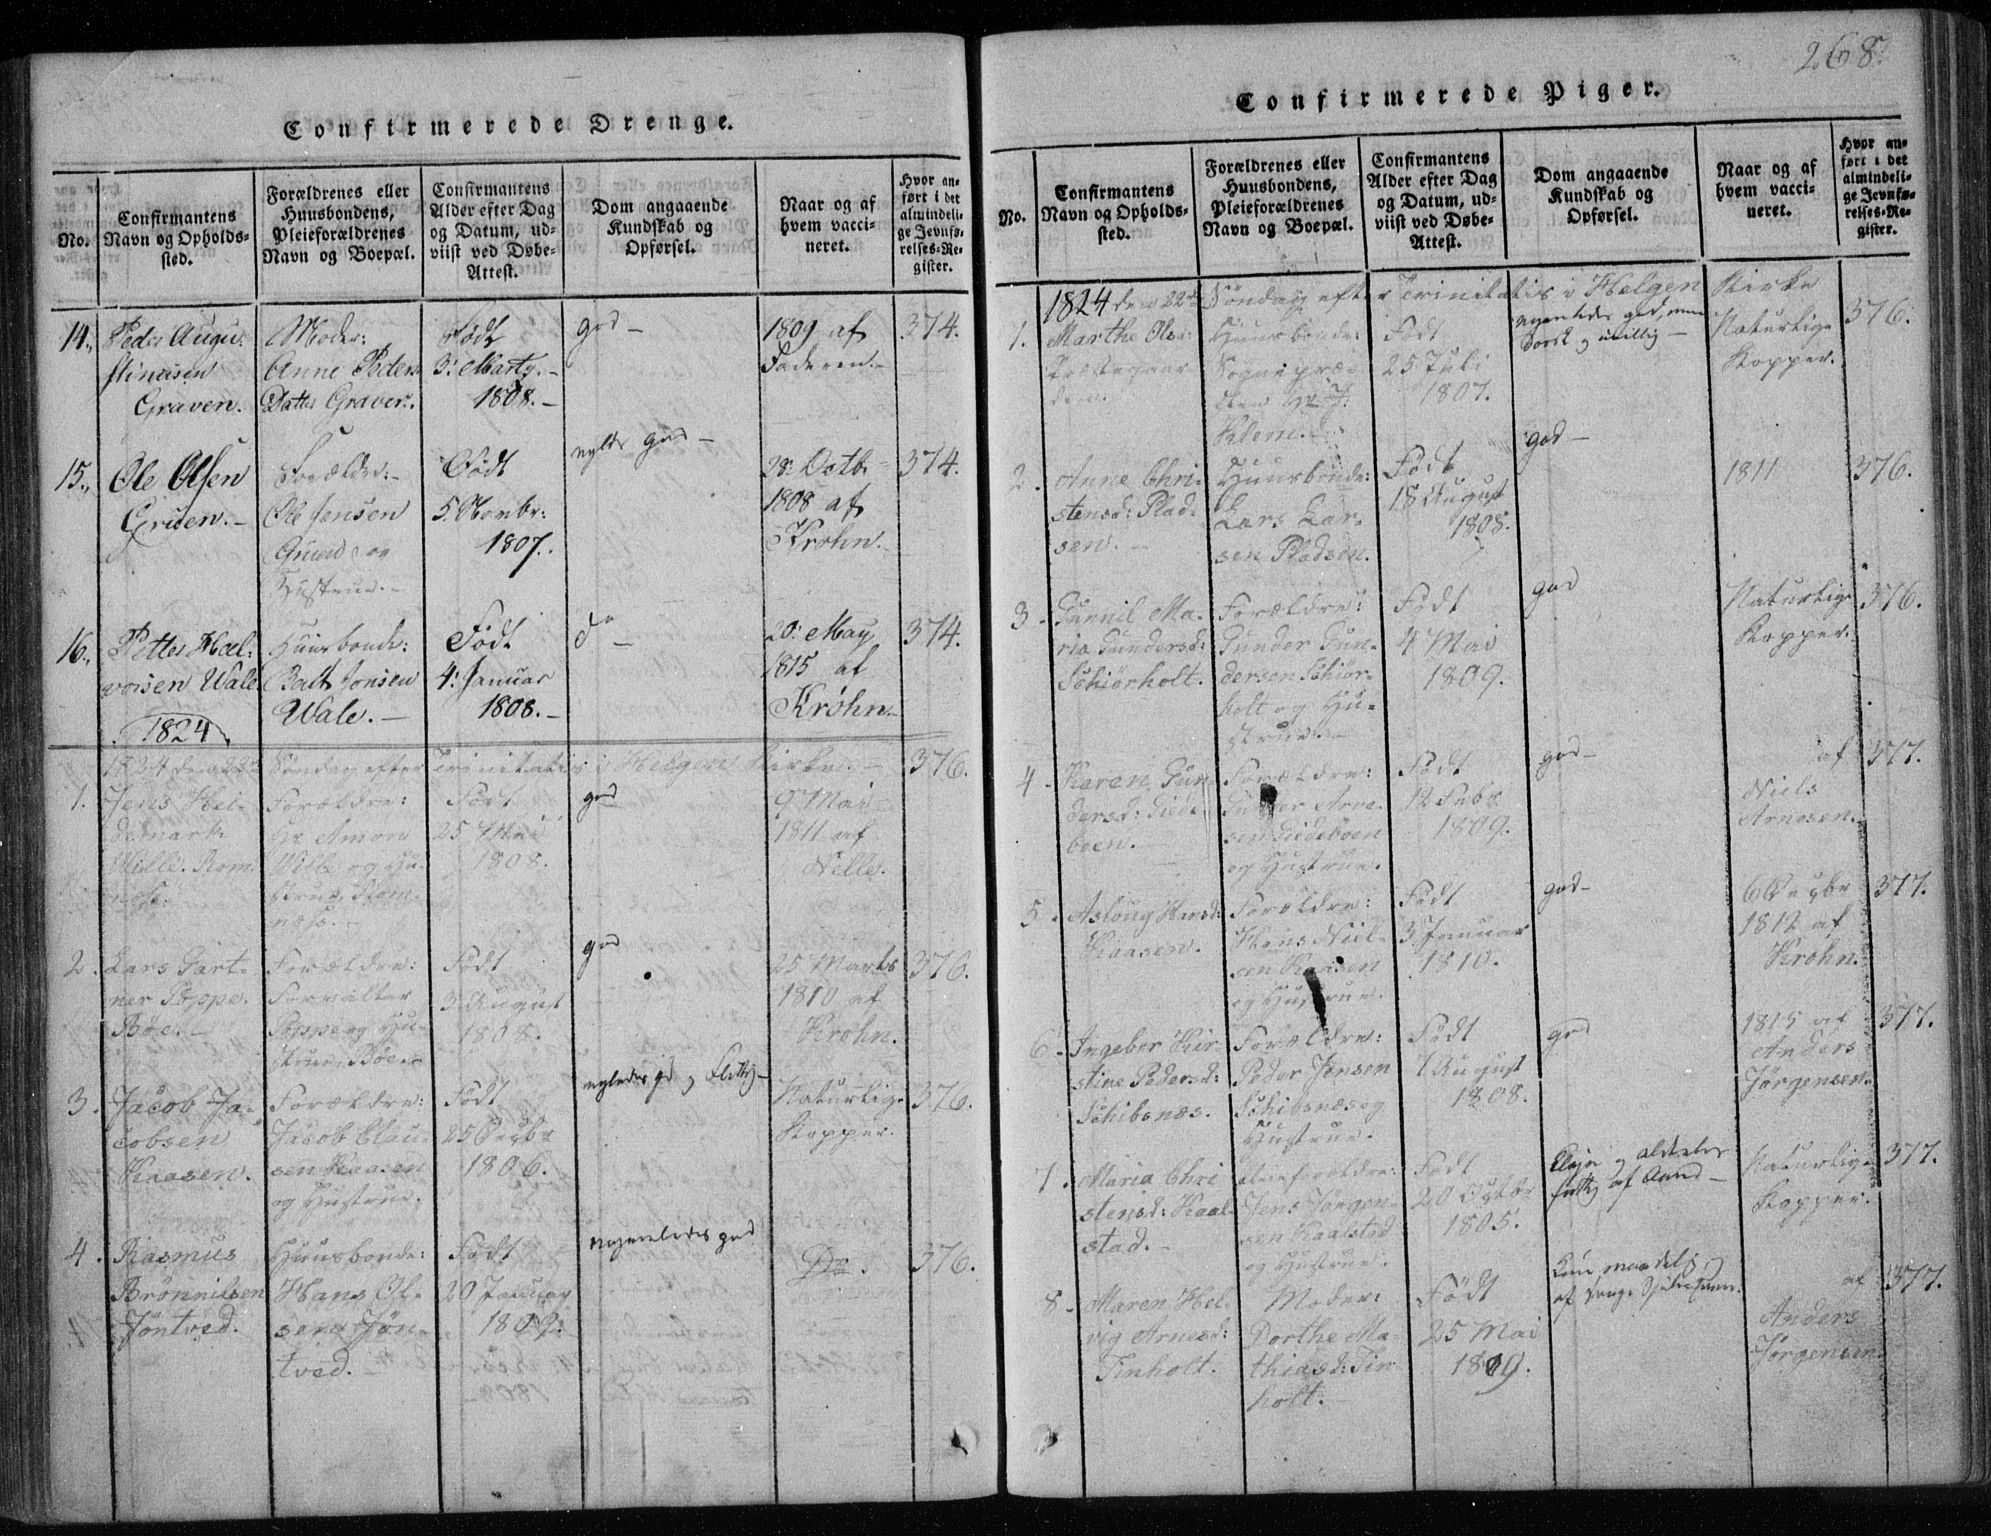 268.
Confirmerede Drenge.
No.
Confirmantens
Navn og Opholds-
sted.
Forældrenes eller
Huusbondens,
Pleieforældrenes
Navn og Boepæl.
Confirmantens
Alder efter Dag
og Datum, ud-
viist ved Døbe-
Attest.
Dom angaaende
Kundskab og
Opførsel.
Naar og af
hvem vacci-
neret.
Hvor an-
ført i det
almindeli-
ge Jevnfø-
relses-Re-
gister.
14.,
Peder Augu-
stinusen
Graven.
Moder:
Anne Peders
Datter Graven.
Født
3: Marty.-
1808.-
god-
1809 af
Faderen.-
374.
15.,
Ole Olsen
Gruen.-
Forældre:-
Ole Jensen
og
Hustrue.-
Født
5. Novembr:
1807.
god-
28: Octb.
1808 af
Krohn.-
374.
16.,
Petter Hal-
vorsen Wale.
Huusbonde:
Jonsen
Wale.-
Født
4: Januar
1808.-
do
-
20: May
1815 af
Krohn.-
374.
1824
1824 den 22de Søndag efter Trinitatis i Helgen Kirke.- 376.
1.
Jens Hei-
demark
Wille. Rom-
næs.
Forældre:
Hr Amon
Wille og Hu-
strue, Rom-
næss.-
Født
25 Mai
1808.
god
9 Mai
1811 af
Wille.
2.
Lars Gart-
ner Poppe.
Bøe.-
Forældre:
Forvalter
Poppe og Hu-
strue, Bøe.-
Født
3 August
1808.
god
25 Marts
1810 af
Krohn.
376.
3.
Jacob Ja-
cobsen
Kaasen.
Forældre:
Jacob Clau-
sen Kaasen
og Hustrue.
Født
25
1806.
og Flittig-
Naturlige
Kopper.
376.
4.
Rasmus
Brønnilsen
Jøntved.
Huusbonde:
Hans Ol-
sen Jøn-
tved.-
Født
20 Januar
1809.
nogenledes god
Do.
376.
Confirmerede Piger.
No.
Confirmantens
Navn og Opholds-
sted.
Forældrenes eller
Huusbondens,
Pleieforældrenes
Navn og Boepæl.
Confirmantens
Alder efter Dag
og Datum, ud-
viist ved Døbe-
Attest.
Dom angaaende
Kundskab og
Opførsel.
Naar og af
hvem vacci-
neret.
Hvor an-
ført i det
almindeli-
ge Jevnfø-
relses-Re-
gister.
1824 den 22de Søndag efter Trinitatis i Helgen Kirke
1.
Marthe Ols:
Præstegaar-
den.
Huusbonde:
Sognepræ-
sten Hr J.
Klem.
Født
25 Juli
1807.
nogenledes god, men
Dorsk og uvillig-
Naturlige
Kopper.
376.
2.
Anne Chri-
stensd: Plad-
sen.-
Huusbonde:
Lars Lar-
sen Pladsen.
Født
18 August
1808.
god-
1811
376.
3.
Gunnil Ma-
ria Gundersd:
Schiørholt.
Forældre:
Gunder Gun-
dersen Schiør-
holt og Hu-
strue.-
Født
4 Mai
1809.
god
Naturlige
Kopper.
376.
4.
Karen Gun-
dersd: Giede-
boen.
Forældre:
Gunder Arne-
sen Giedeboen
og Hustrue.
Født
12 Febr
1809.
god-
af
Niels
Arnesen.
377.
5.
Asloug Hansd:
Kaasen.
Forældre:
Hans Niel-
sen Kaasen
og Hustrue.
Født
3 Januar
1810.
god-
6
1812 af
Krohn.
377.
6.
Ingebor Kir-
stine Pedersd:
Schibsnæs.
Forældre:
Peder Jensen
Schibsnæs og
Hustrue.
Født
1 August
1808.
god
1815 af
Anders
Jørgensen.
377.
7.
Maria Chri
stensd: Kaal-
stad.-
Pleieforældre:
Jens Jørgen-
sen Kaalstad
og Hustrue.
Født
20
1805.
og aldeles
af Aand-
Naturlige
Kopper.
377.
8.
Maren Hel-
vig Arnesd:
Tinholt.
Moder:
Dorthe Ma-
thiasd: Tin-
holt.-
Født
25 Mai
1809.
af
Anders
Jørgensen.
377.